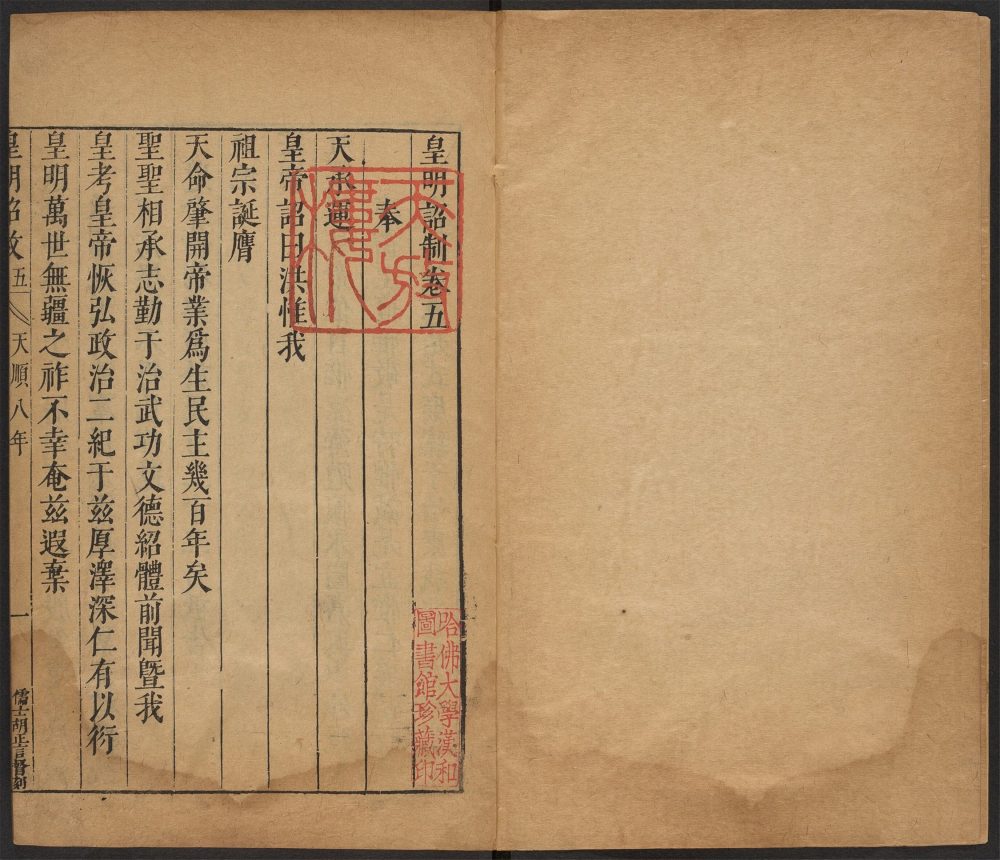 皇明詔制卷五
奉
天承運
皇帝詔曰洪惟我
祖宗誕膺
天命肇開帝業爲生民主幾百年矣
聖聖相承志勤于治武功文德紹體前聞曁我
皇考皇帝恢弘政治二紀于兹厚澤深仁有以衍
皇明萬世無疆之祚不幸奄兹遐棄
皇明詔敕 五 天順八年 一 儒士胡正言督刻
哈佛大學漢和
圖書館珍藏印